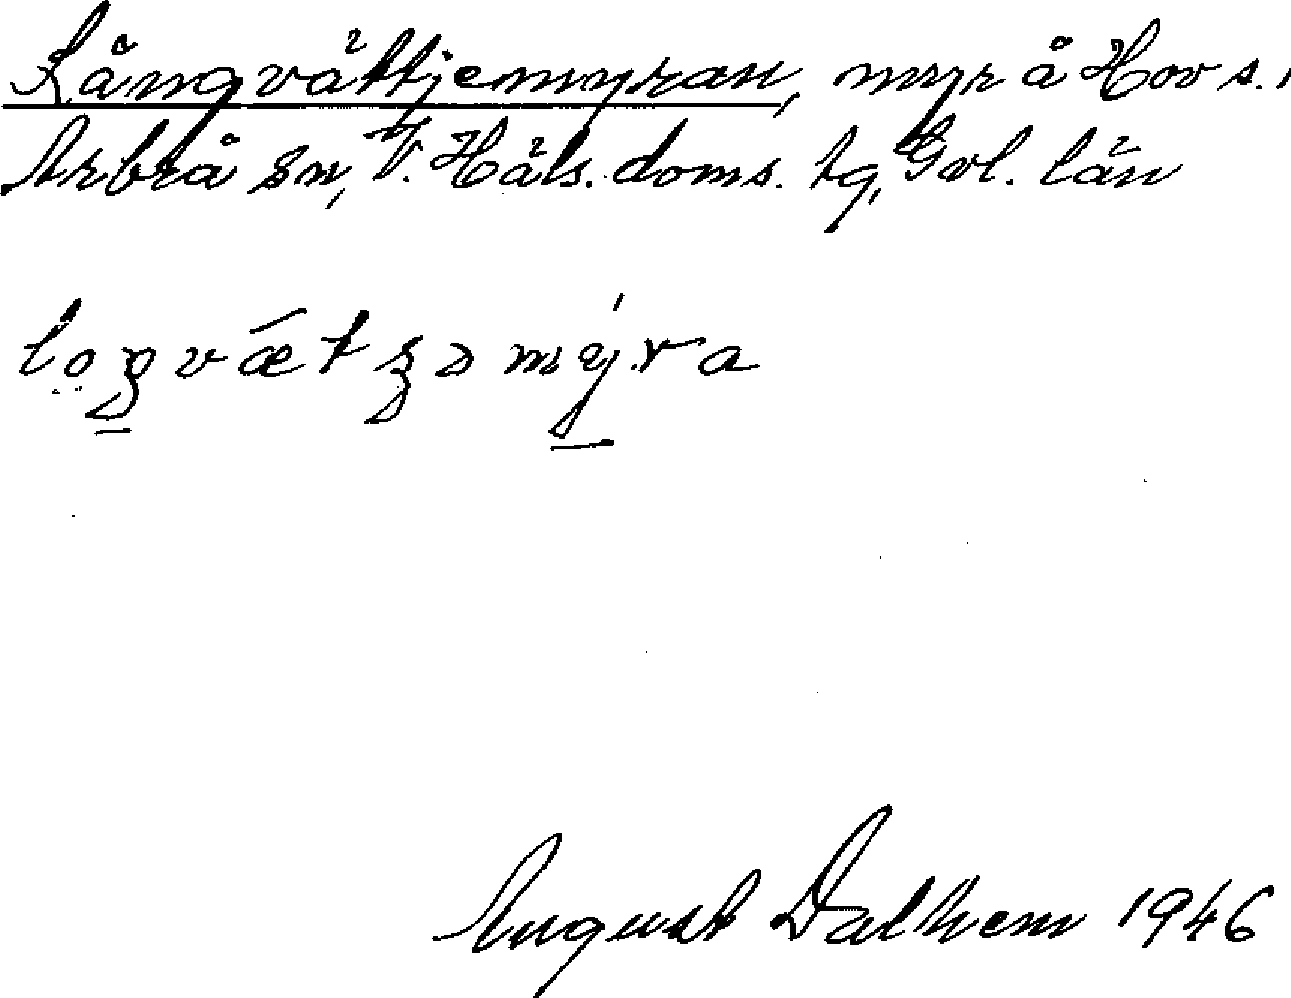 Långvättjemyran, myr å Hov s.,
Arbrå sn, V. Häls. doms. tg, Gvl. län
August Dalhem 1946